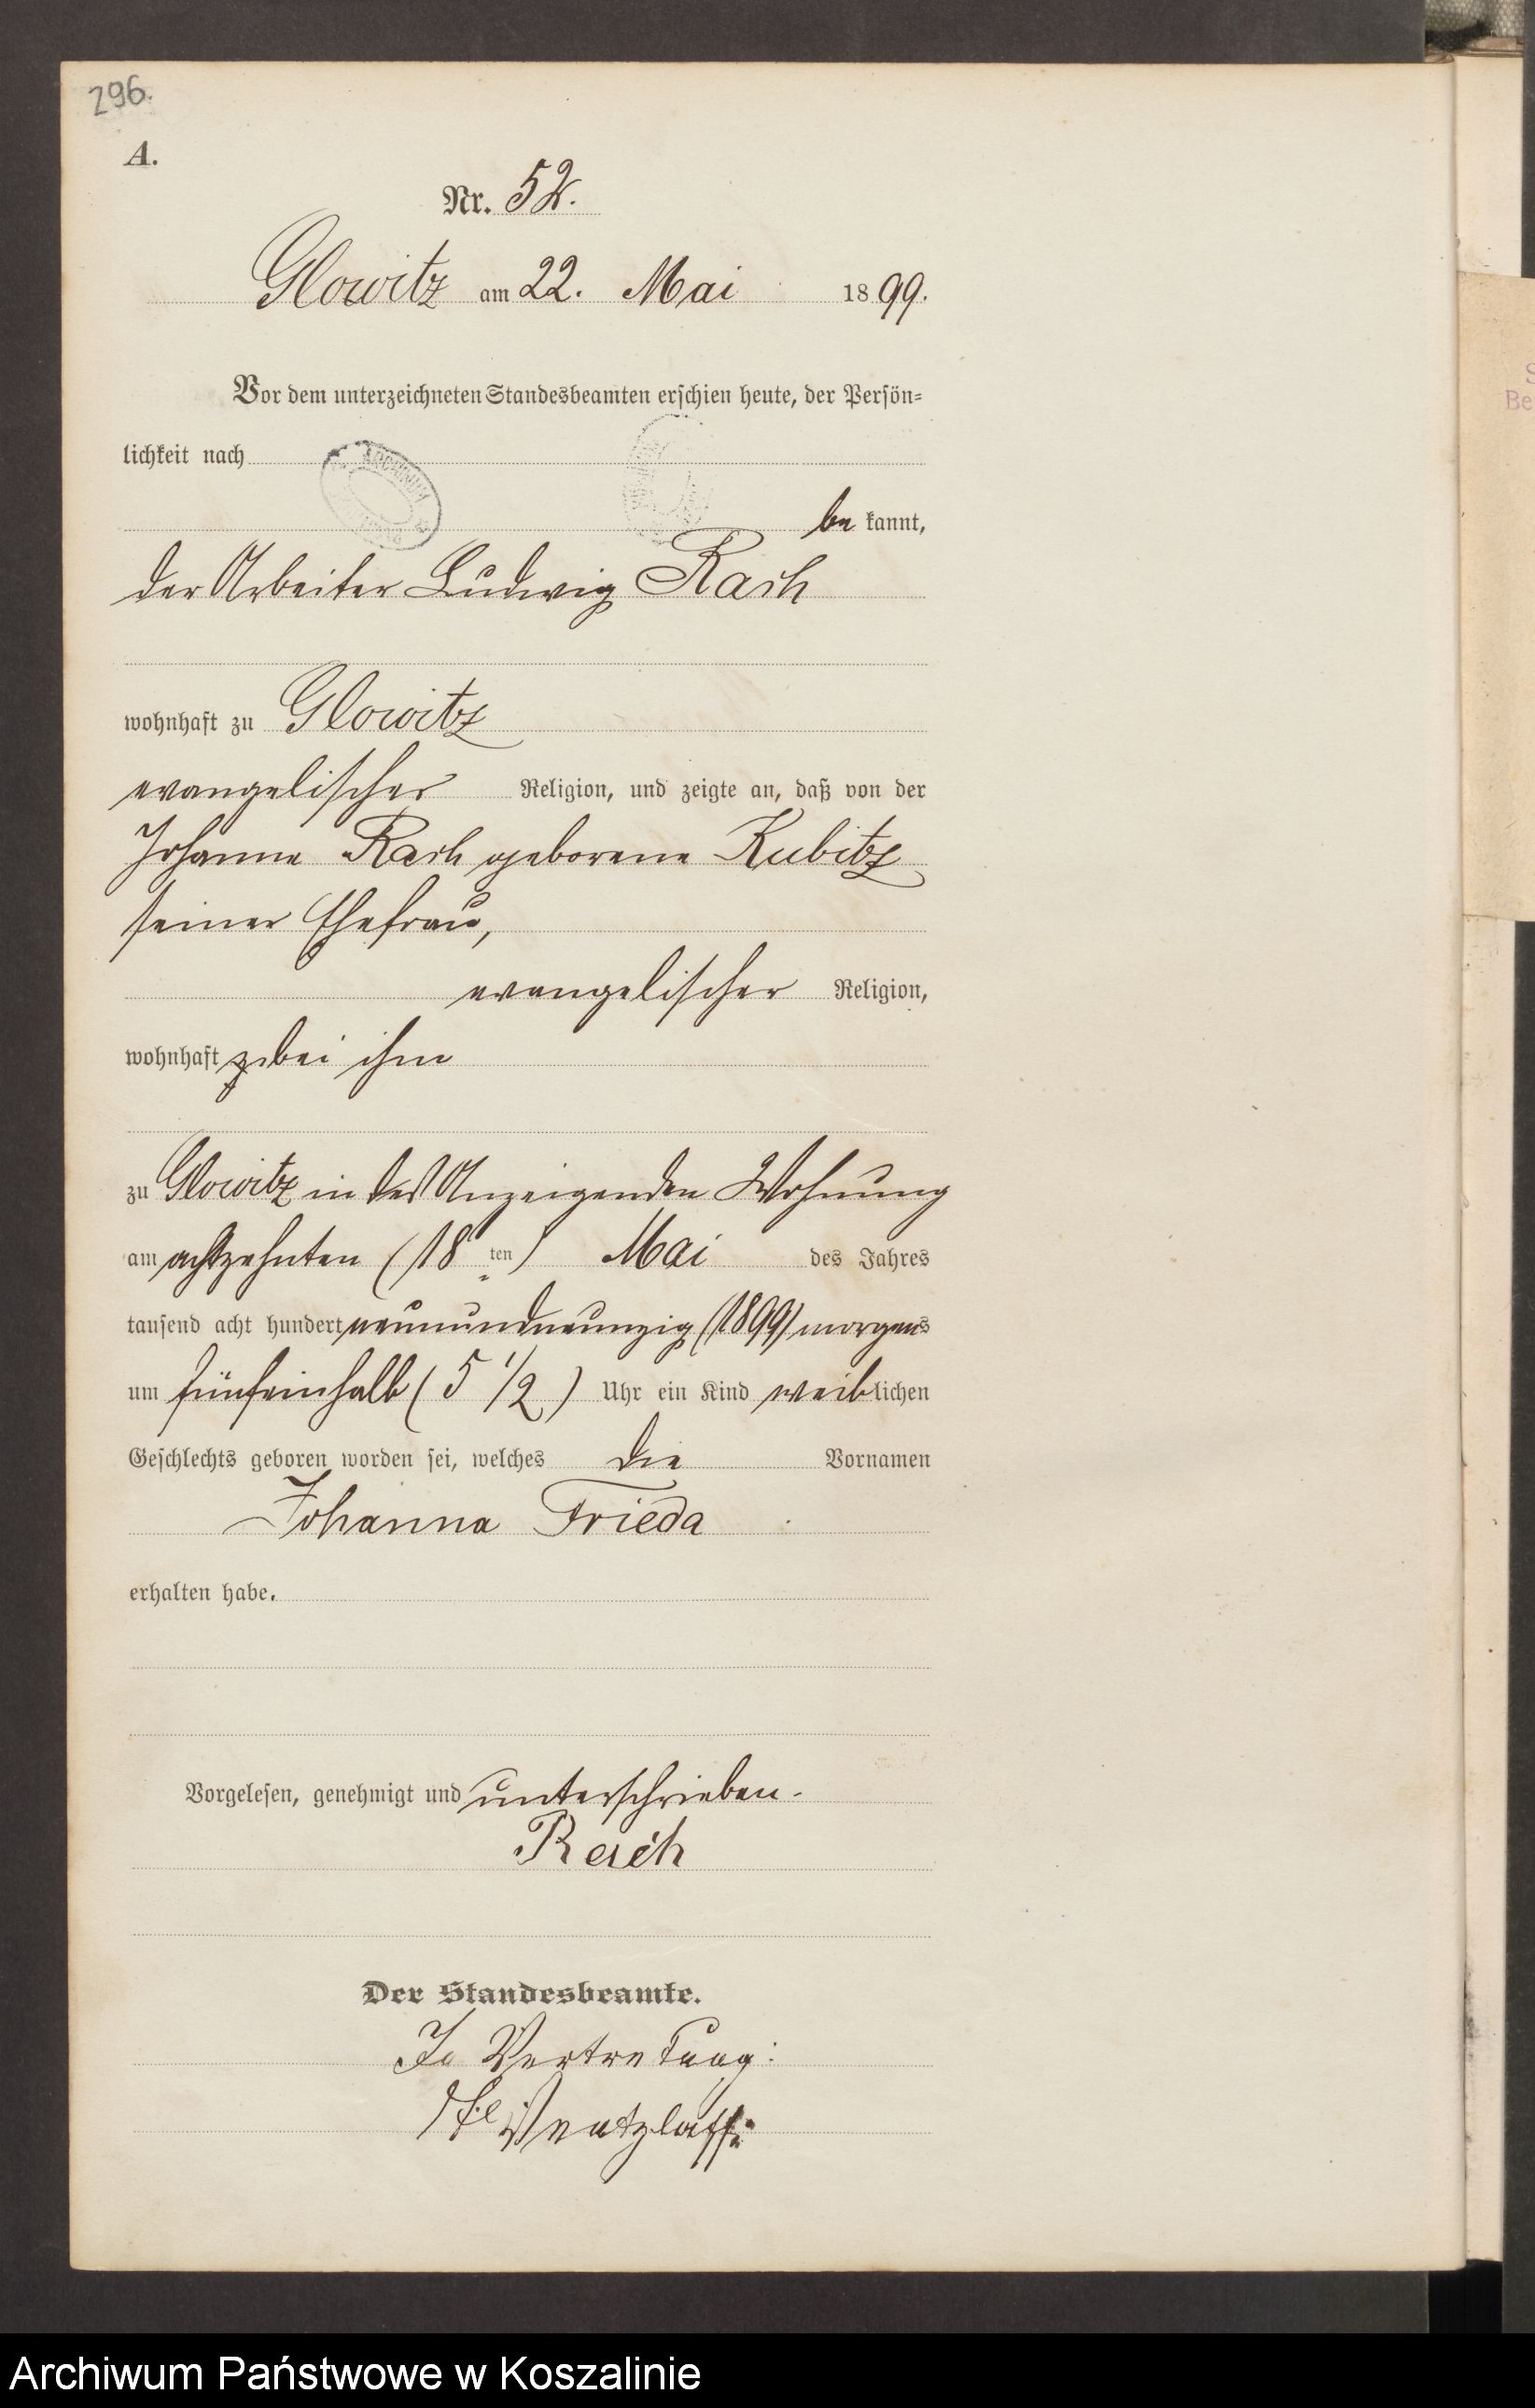 296.
A.
Nr. 52.
Glowitz am 22. Mai 1899.
Vor dem unterzeichneten Standesbeamten erschien heute, der Persön-
lichkeit nach
be kannt,
der Arbeiter Ludwig Rach
wohnhaft zu Glowitz
evangelischer Religion, und zeigte an, daß von der
Johanne Rach geborene Kubitz
seiner Ehefrau,
evangelischer Religion,
wohnhaft bei ihm
zu Glowitz in des Anzeigenden Wohnung
am achtzehnten (18 ten) Mai des Jahres
tausend acht hundert neunundneunzig (1899) morgens
um fünfeinhalb (5 1/2) Uhr ein Kind weiblichen
Geschlechts geboren worden sei, welches die Vornamen
Johanna Frieda
erhalten habe.
Vorgelesen, genehmigt und unterschrieben.
Rach
Der Standesbeamte.
In Vertretung:
Ventzlaff
Archiwum Państwowe w Koszalinie